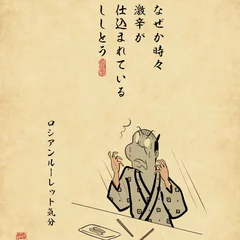 なぜか時々
激辛が
仕込まれている
ししとう
ロシアンルーレット気分